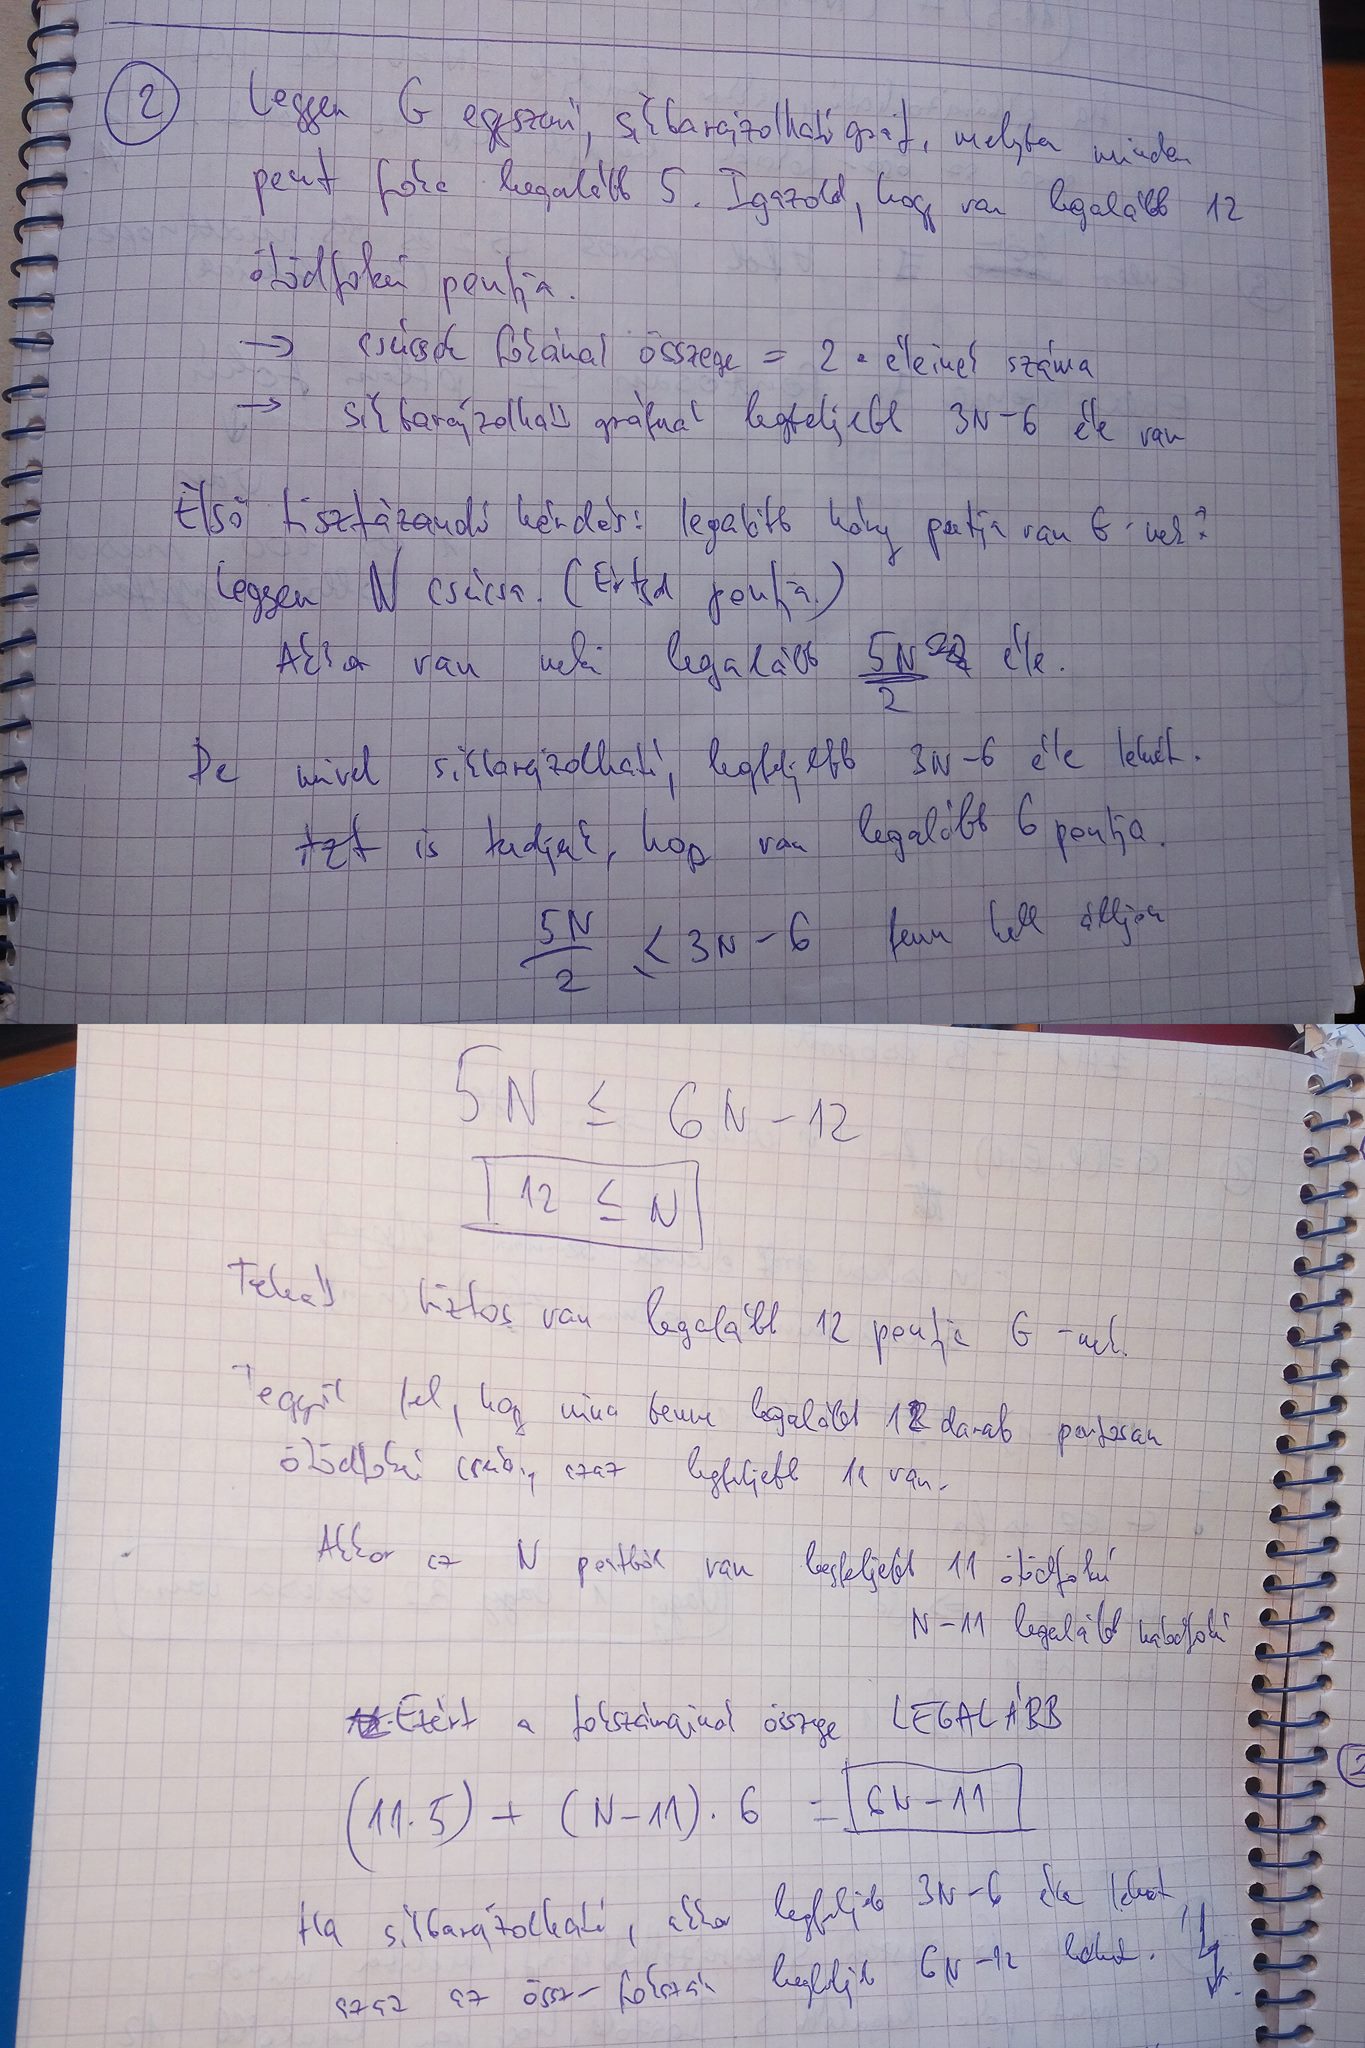 2 Legyen G egyszerű, síkbarajzolható gráf, melyben minden
pont foka legalább 5. Igazold, hogy van legalább 12
ötödfokú pontja.
→ csúcsok fokának összege = 2 • éleinek száma
→ síkbarajzolható gráfnak legfeljebb 3N-6 éle van
Első tisztázandó kérdés: legalább hány pontja van G-nek?
Legyen N csúcsa. (Értsd pontja.)
Akkor van neki legalább 5N/2 éle.
De mivel síkbarajzolható, legfeljebb 3N-6 éle lehet.
Azt is tudjuk, hogy van legalább 6 pontja.
5N/2 ≤ 3N-6 fenn kell álljon
5N ≤ 6N-12
12 ≤ N
Tehát biztos van legalább 12 pontja G-nek.
Tegyük fel, hogy nincs benne legalább 12 darab pontosan
ötödfokú csúcs, azaz legfeljebb 11 van.
Akkor az N pontból van legfeljebb 11 ötödfokú
N-11 legalább hatodfokú
Ezért a fokszámainak összege LEGALÁBB
(11·5) + (N-11)·6 = 6N-11
Ha síkbarajzolható, akkor legfeljebb 3N-6 éle lehet,
azaz az össz-fokszám legfeljebb 6N-12 lehet.
2